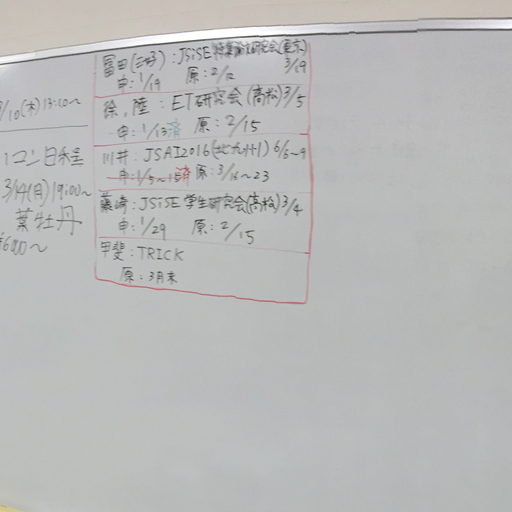 /10(木)13:10~
コン日程
3/14(月)19:00~
葉牡丹
¥6000~
冨田(三好):JSiSE特集論文研究会(東京)
3/19
申:1/19 原:2/12
徐,陸:ET研究会(高松)3/5
申:1/13済 原:2/15
川井:JSAI2016(北九州)6/6~9
申:1/5~15済 原:3/16~23
藤崎:JSiSE学生研究会(高松)3/4
申:1/29 原:2/15
甲斐:TRICK
原:3月末